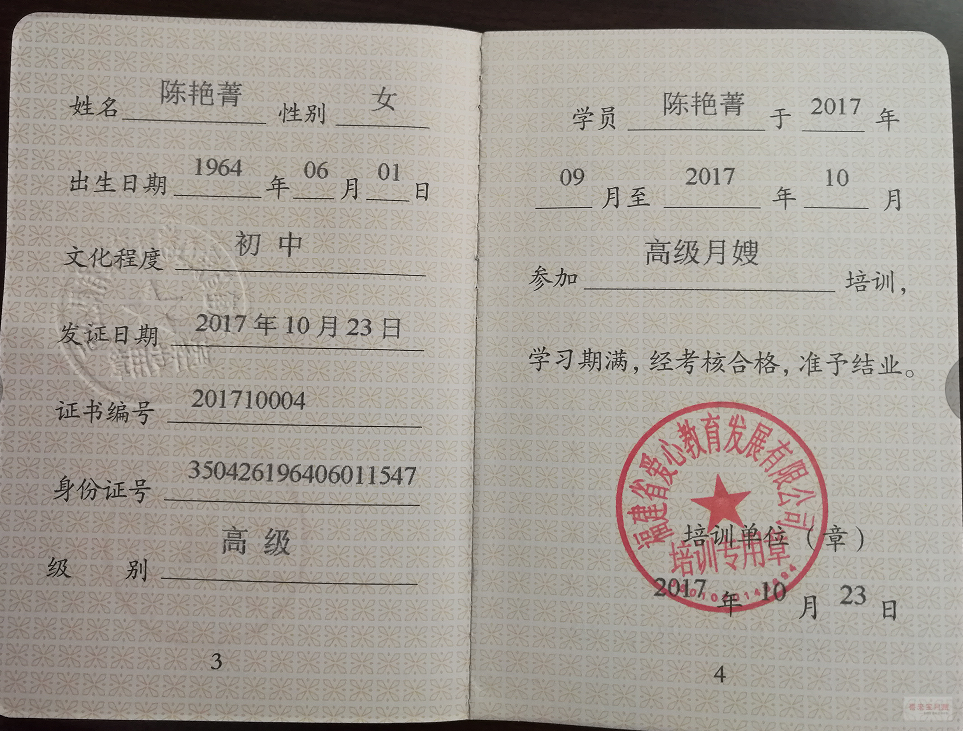 姓名 陈艳菁 性别 女
出生日期 1964 年 06 月 01 日
文化程度 初中
发证日期 2017年10月23日
证书编号 201710004
身份证号 350426196406011547
级 别 高级
3
学员 陈艳菁 于 2017 年
09 月至 2017 年 10 月
参加 高级月嫂 培训，
学习期满，经考核合格，准予结业。
福建省爱心教育发展有限公司
培训单位（章）
培训专用章
2017 年 10 月 23 日
4